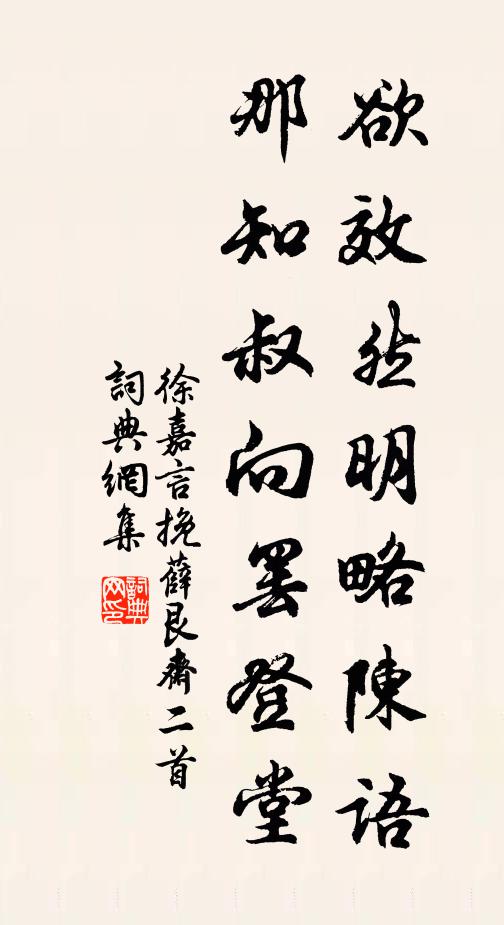 欲效然明略陳語
那知叔向罷登堂
徐嘉言挽薛艮齋二首
詞典網集
詞典网印